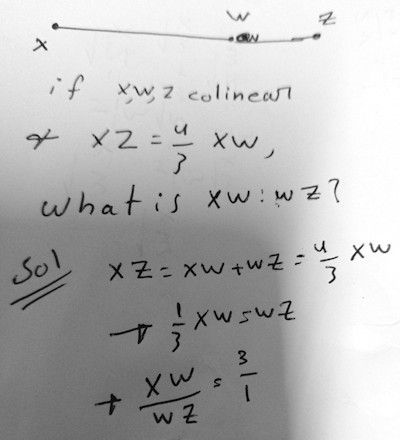 W
Z
W
X
if x,w,z colinear
& XZ = 4/3 XW,
what is XW:WZ?
Sol XZ = XW+WZ = 4/3 XW
→ 1/3 XW = WZ
→ XW/WZ = 3/1